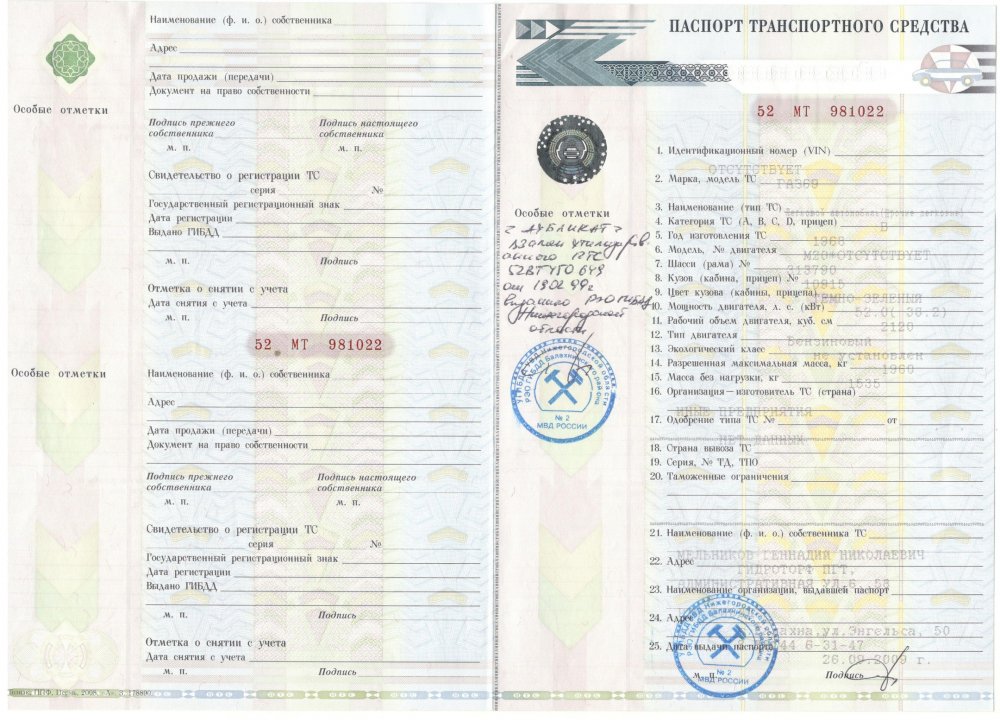 Наименование (ф. и. о.) собственника
Адрес
Дата продажи (передачи)
Документ на право собственности
Особые отметки
Подпись прежнего собственника
Подпись настоящего собственника
м. п.
м. п.
Свидетельство о регистрации ТС
серия №
Государственный регистрационный знак
Дата регистрации
Выдано ГИБДД
м. п. Подпись
Отметка о снятии с учета
Дата снятия с учета
м. п. Подпись
52 МТ 981022
Особые отметки
Наименование (ф. и. о.) собственника
Адрес
Дата продажи (передачи)
Документ на право собственности
Подпись прежнего собственника
Подпись настоящего собственника
м. п.
м. п.
Свидетельство о регистрации ТС
серия №
Государственный регистрационный знак
Дата регистрации
Выдано ГИБДД
м. п. Подпись
Отметка о снятии с учета
Дата снятия с учета
м. п. Подпись
ПАСПОРТ ТРАНСПОРТНОГО СРЕДСТВА
52 МТ 981022
1. Идентификационный номер (VIN)
ОТСУТСТВУЕТ
2. Марка, модель ТС
ГАЗ69
3. Наименование (тип ТС)
Легковой автомобиль(прочие легковые)
4. Категория ТС (A, B, C, D, прицеп)
B
5. Год изготовления ТС
1968
6. Модель, № двигателя
М20*ОТСУТСТВУЕТ
7. Шасси (рама) №
213790
8. Кузов (кабина, прицеп) №
10915
9. Цвет кузова (кабины, прицепа)
ТЕМНО-ЗЕЛЕНЫЙ
10. Мощность двигателя, л. с. (кВт)
52.0( 38.2)
11. Рабочий объем двигателя, куб. см
2120
12. Тип двигателя
Бензиновый
13. Экологический класс
не установлен
14. Разрешенная максимальная масса, кг
1960
15. Масса без нагрузки, кг
1535
16. Организация—изготовитель ТС (страна)
ИНЫЕ ПРЕДПРИЯТИЯ
17. Одобрение типа ТС № от
НЕТ ДАННЫХ
18. Страна вывоза ТС
19. Серия, № ТД, ТПО
20. Таможенные ограничения
21. Наименование (ф. и. о.) собственника ТС
МЕЛЬНИКОВ ГЕННАДИЙ НИКОЛАЕВИЧ
22. Адрес
ГИДРОТОРФ ПГТ,
АДМИНИСТРАТИВНАЯ УЛ,6
23. Наименование организации, выдавшей паспорт
24. Адрес
ул.Энгельса, 50
25. Дата выдачи паспорта
6-31-47
26.09.2009 г.
м. п. Подпись
Особые отметки
"ДУБЛИКАТ"
взамен утилизиров.
анного ПТС
52ВТ750649
от 19.02.99г
выданного РЭО ГИБДД
Нижегородской
области
УГИБДД ГУВД Нижегородской области
РЭО ГИБДД Балахнинского района
№ 2
МВД РОССИИ
№ 2
МВД РОССИИ